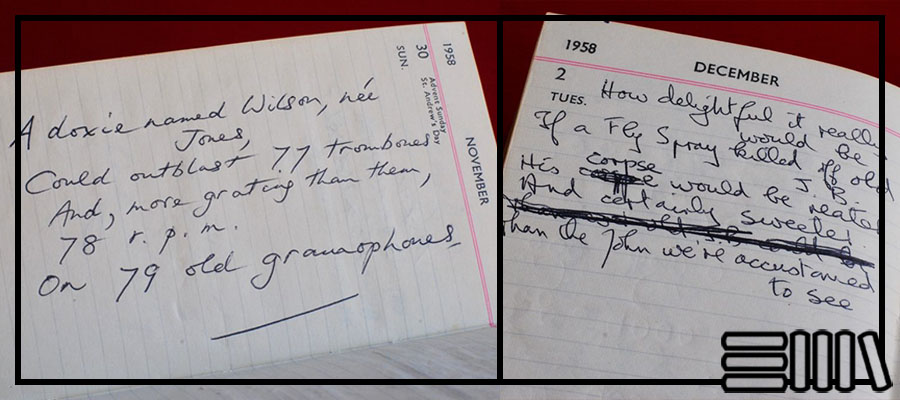 1958
NOVEMBER
30
SUN.
Advent Sunday
St. Andrew's Day
A doxie named Wilson, née
Jones,
Could outblast 77 trombones
And, more grating than them,
78 r.p.m.
On 79 old gramophones
1958
DECEMBER
2
TUES.
How delightful it really
would be
If a Fly Spray killed off old
J.B.
corpse
His would be neater
And certainly sweeter
Than the John we're accustomed
to see